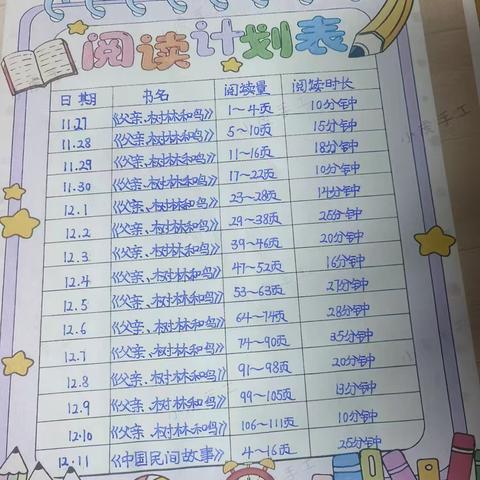 阅读计划表
日期 书名 阅读量 阅读时长
11.27 《父亲、树林和鸟》 1～4页 10分钟
11.28 《父亲、树林和鸟》 5～10页 15分钟
11.29 《父亲、树林和鸟》 11～16页 18分钟
11.30 《父亲、树林和鸟》 17～22页 10分钟
12.1 《父亲、树林和鸟》 23～28页 14分钟
12.2 《父亲、树林和鸟》 29～38页 25分钟
12.3 《父亲、树林和鸟》 39～46页 20分钟
12.4 《父亲、树林和鸟》 47～52页 16分钟
12.5 《父亲、树林和鸟》 53～63页 27分钟
12.6 《父亲、树林和鸟》 64～74页 28分钟
12.7 《父亲、树林和鸟》 74～90页 35分钟
12.8 《父亲、树林和鸟》 91～98页 20分钟
12.9 《父亲、树林和鸟》 99～105页 13分钟
12.10 《父亲、树林和鸟》 106～111页 10分钟
12.11 《中国民间故事》 4～16页 25分钟